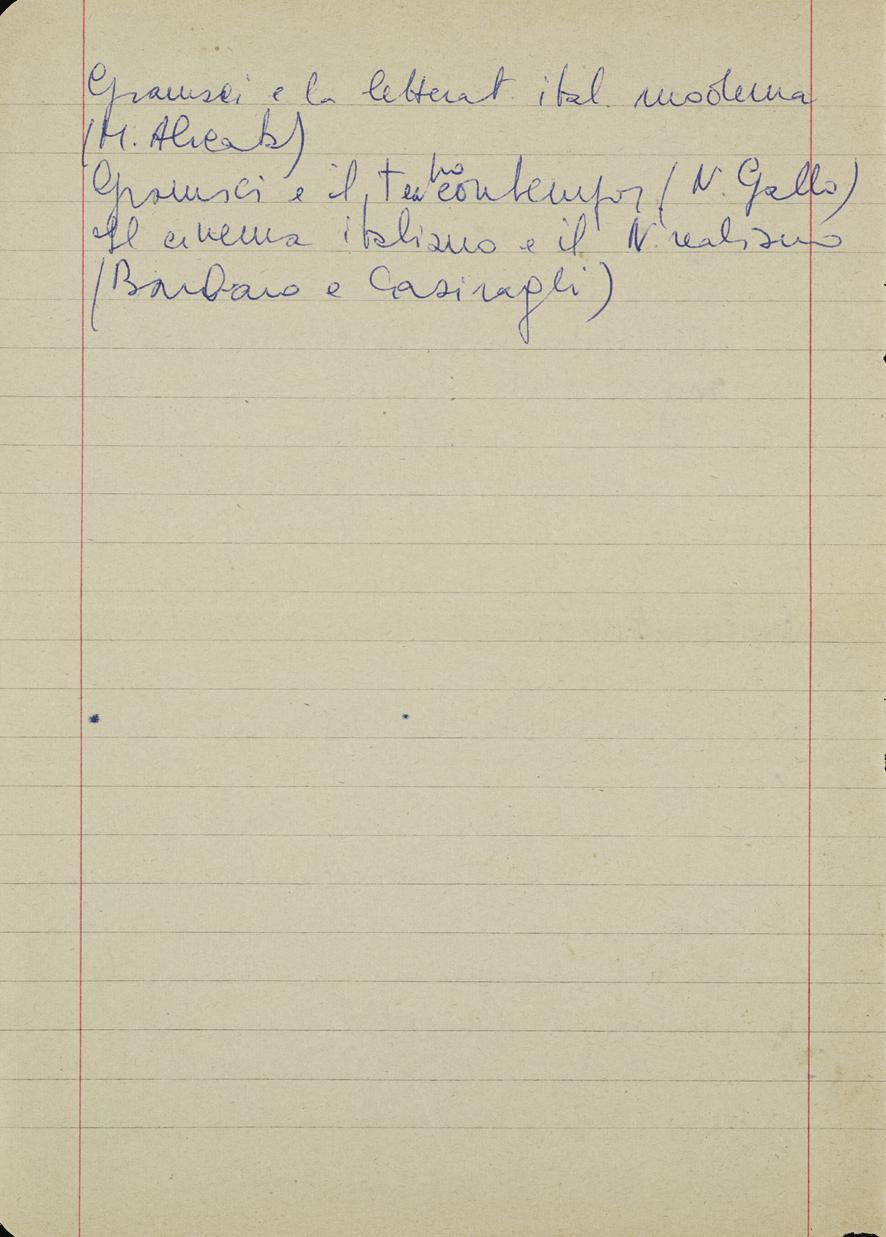 Gramsci e la letterat. ital. moderna
(M. Alicata)
Gramsci e il teatro contempor (N. Gallo)
Il cinema italiano e il N. realismo
(Barbaro e Casiraghi)